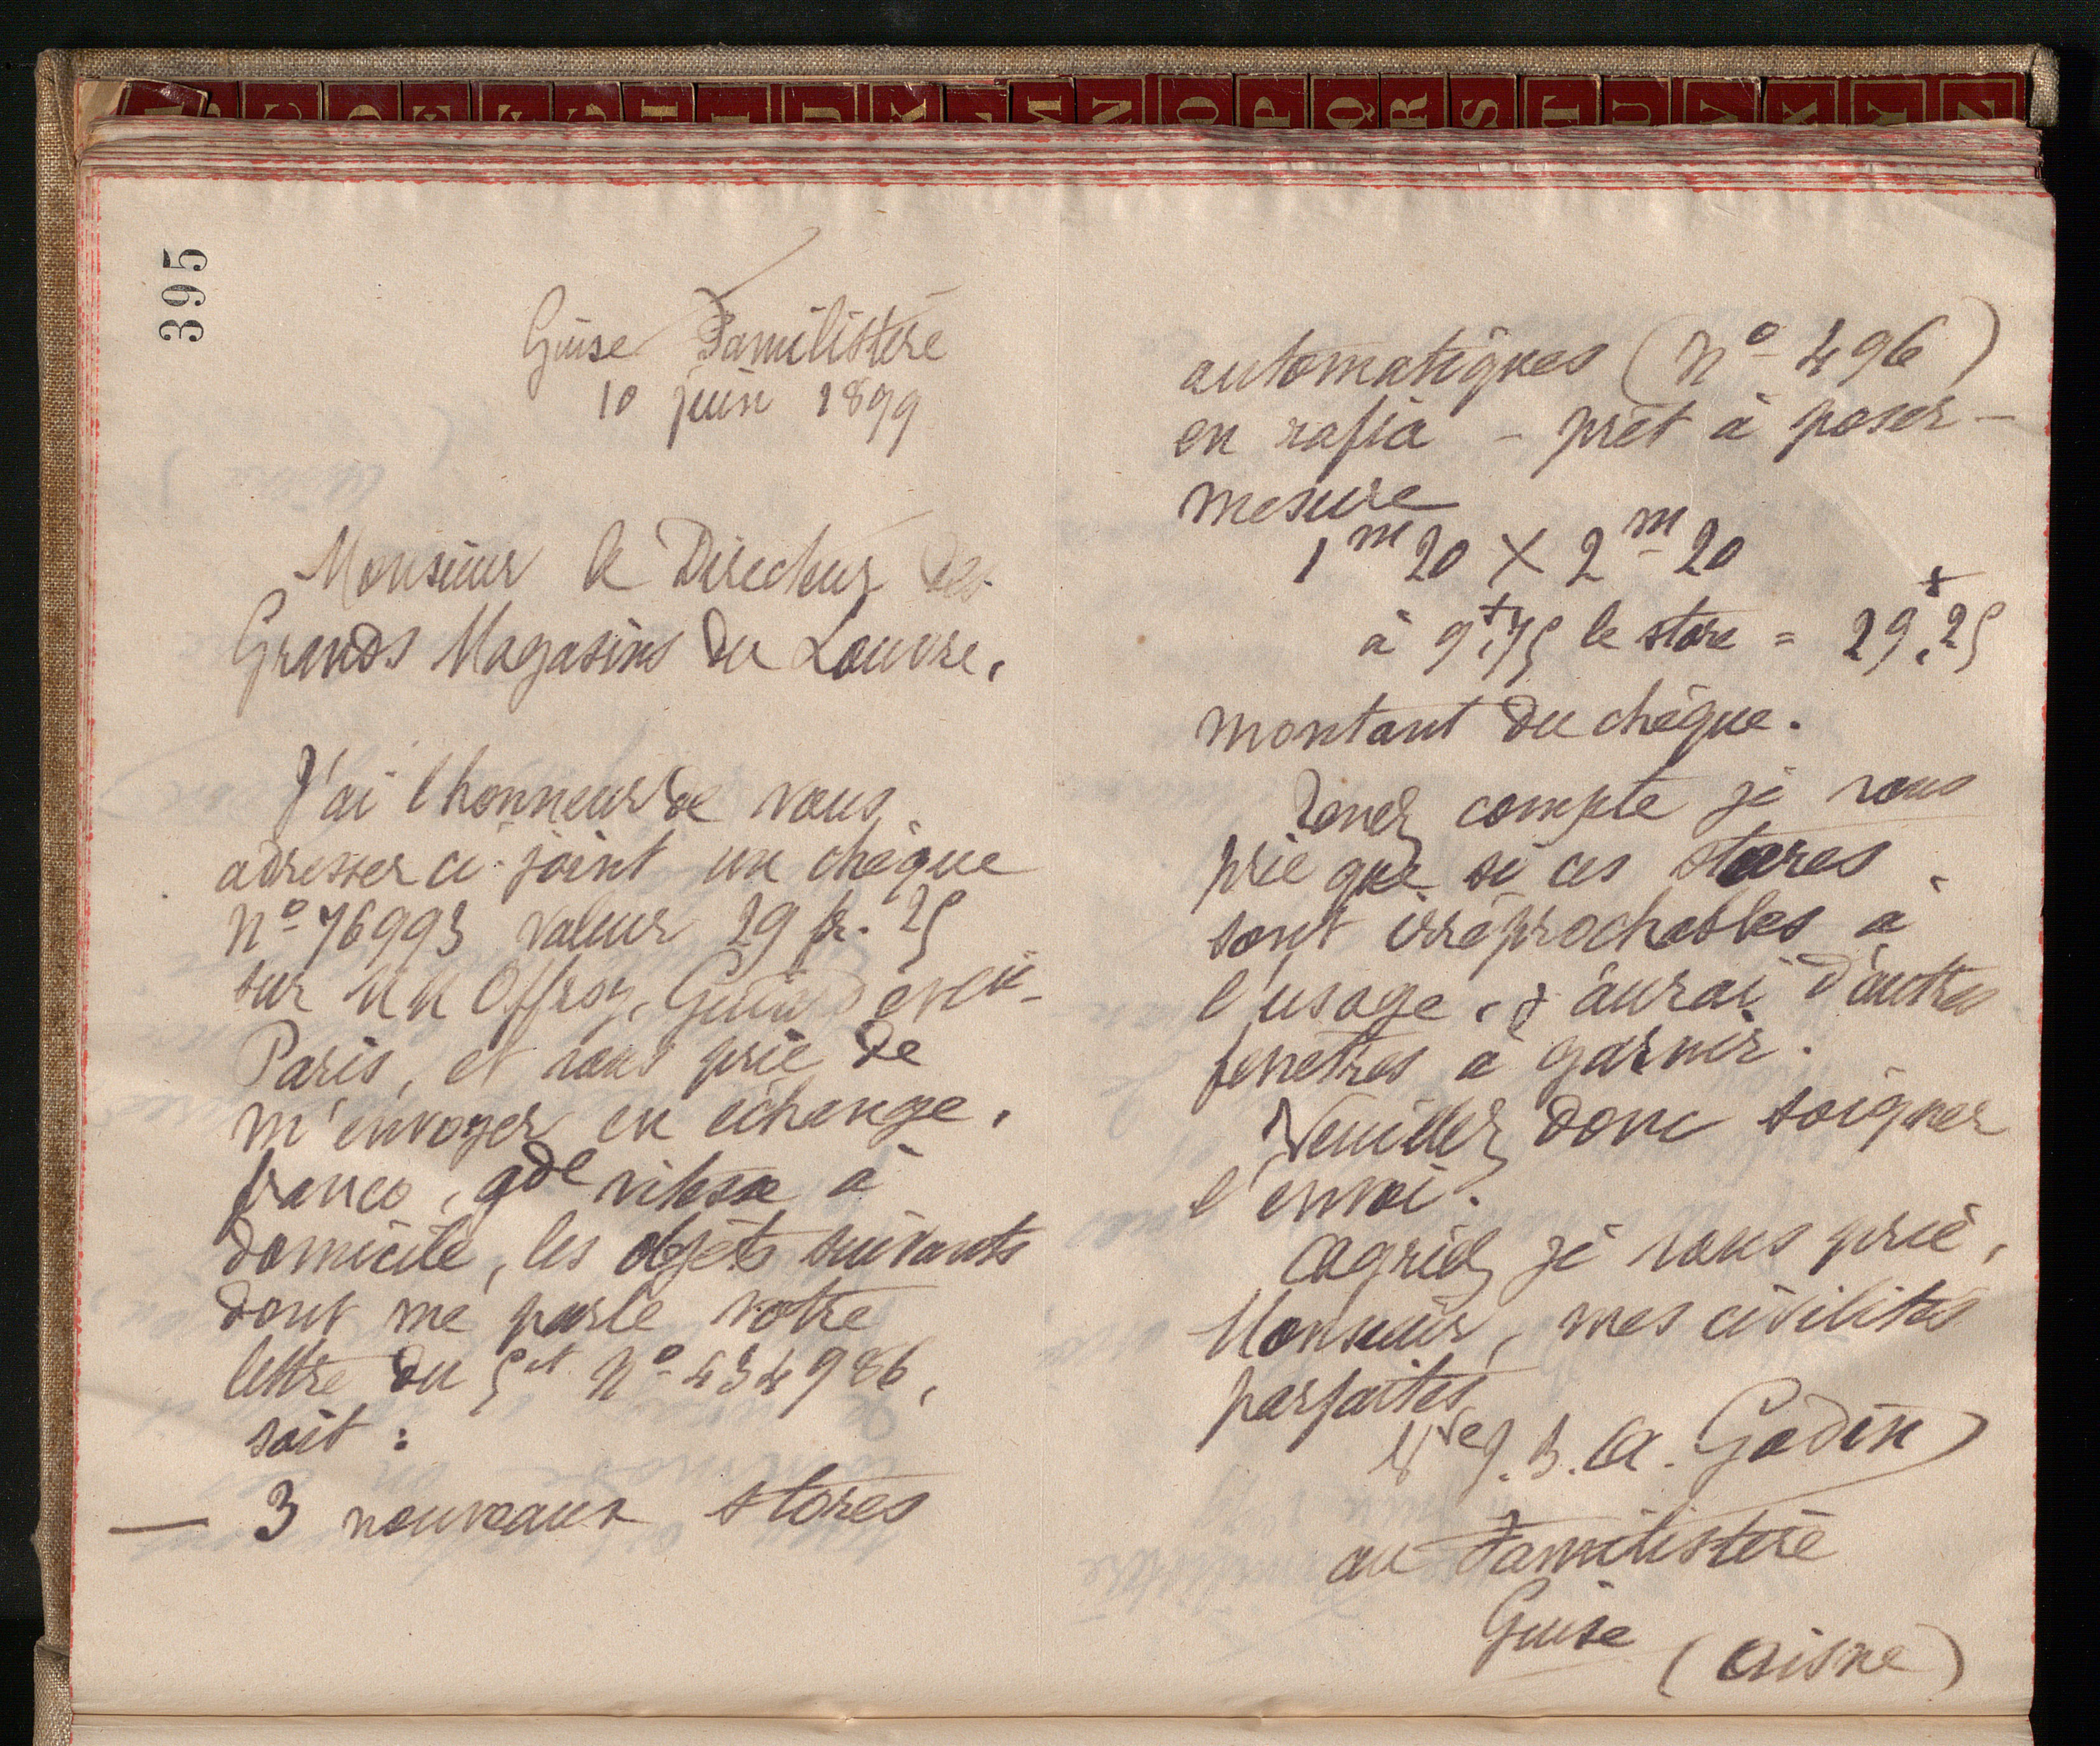 395
A B C D E F G H I J K L M N O P Q R S T U V X Y Z
Guise Familistère
10 juin 1899
Monsieur le Directeur des
Grands Magasins du Louvre,
J'ai l'honneur de vous
adresser ci-joint un chèque
Nº 76993 valeur 29 fr. 25
sur MM Offroy, Guiard et Cie
Paris, et vous prie de
m'envoyer en échange,
franco, gde vitesse à
domicile, les objets suivants
dont me parle votre
lettre du 5 ct Nº 434986,
soit :
— 3 nouveaux stores
automatiques (Nº 496)
en rafia - prêt à poser -
mesure
1m20 X 2m20
à 9f,75 le store = 29f,25
montant du chèque.
Tenez compte je vous
prie que si ces stores
sont irréprochables à
l'usage, j'aurai d'autres
fenêtres à garnir.
Veuillez donc soigner
l'envoi.
Agréez je vous prie,
Monsieur, mes civilités
parfaites
Vve J. B. A. Godin
au Familistère
Guise (Aisne)